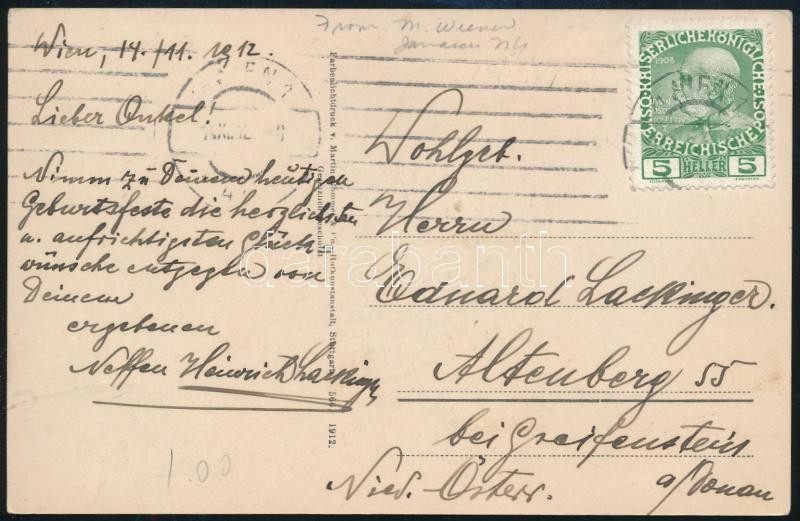 From M. Wiener
Wien, 14./11. 1912.
Lieber Onkel!
Nimm zu Deinem heutigen
Geburtsfeste die herzlichsten
u. aufrichtigsten Glück-
wünsche entgegen von
Deinem
ergebenen
Neffen Heinrich Lackinger
1.00
WIEN 1
Farbenlichtdruck v. Martin
Hofkunstanstalt, Stuttgart 1912.
Gesetzlich geschützt
Wohlgeb.
Herrn
Eduard Lackinger.
Altenberg 55
bei Greifenstein
a/Donau
Nied. Österr.
KAISERLICHEKÖNIGLICHE
ÖSTERREICHISCHE POST
1908
5 HELLER 5
darabanth